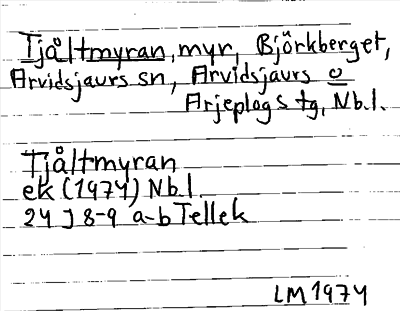 Tjåltmyran, myr, Björkberget,
Arvidsjaurs sn, Arvidsjaurs o
Arjeplogs tg, Nb.l.
Tjåltmyran
ek (1974) Nb.l.
24 J 8-9 a-b Tellek
LM 1974